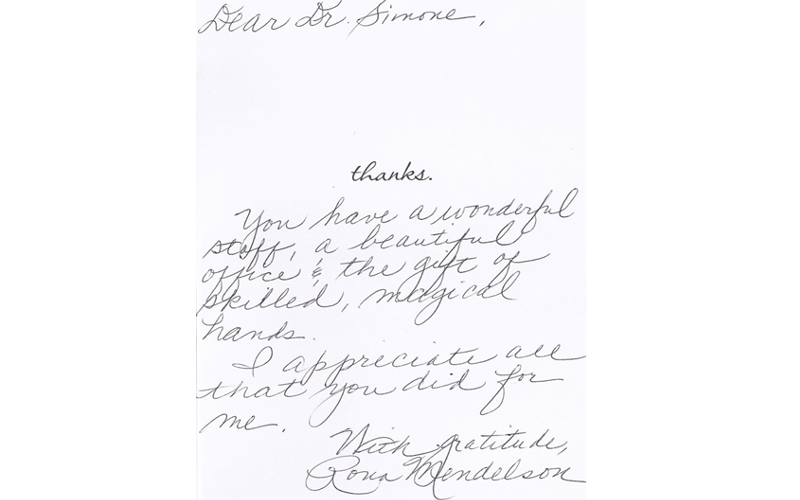 Dear Dr. Simone,
thanks.
You have a wonderful
staff, a beautiful
office & the gift of
skilled, magical
hands.
I appreciate all
that you did for
me.
With gratitude,
Rona Mendelson